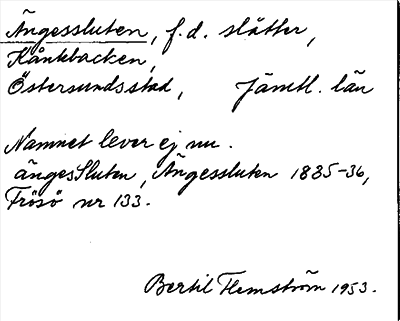 Ängessluten, f.d. slåtter,
Kånkbacken,
Östersundsstad, Jämtl. län
Namnet lever ej nu.
ängesSluten, Ängessluten 1835-36,
Frösö nr 133.
Bertil Flemström 1953.